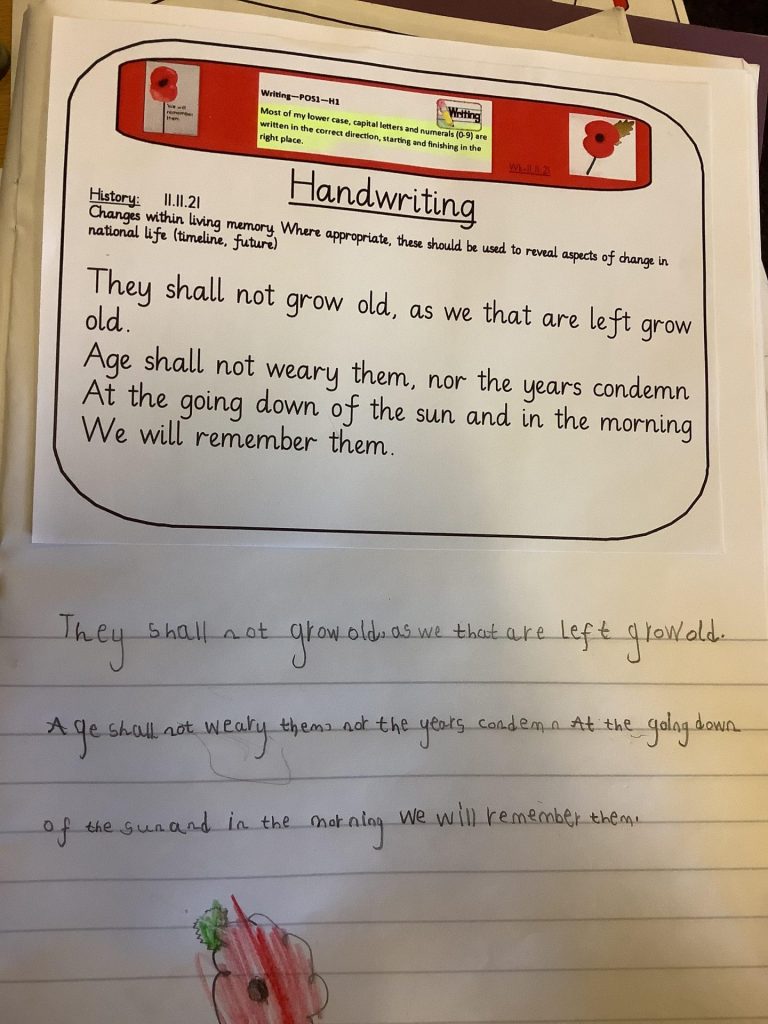 We will
remember
them.
Writing—POS1—H1
Writing
Most of my lower case, capital letters and numerals (0-9) are
written in the correct direction, starting and finishing in the
right place.
Wk-11.11.21
Handwriting
History: 11.11.21
Changes within living memory. Where appropriate, these should be used to reveal aspects of change in
national life (timeline, future)
They shall not grow old, as we that are left grow
old.
Age shall not weary them, nor the years condemn
At the going down of the sun and in the morning
We will remember them.
They shall not grow old, as we that are left grow old.
Age shall not weary them, nor the years condemn At the going down
of the sun and in the morning We will remember them.